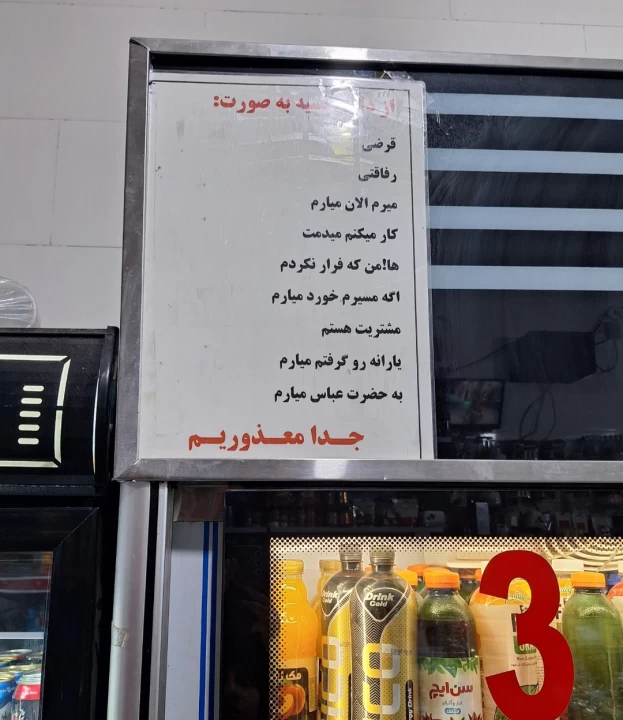 از دادن نسیه به صورت:
قرضی
رفاقتی
میرم الان میارم
کار میکنم میدمت
ها!من که فرار نکردم
اگه مسیرم خورد میارم
مشتریت هستم
یارانه رو گرفتم میارم
به حضرت عباس میارم
جدا معذوریم
3
Drink Cold
Drink Cold
سن ایچ